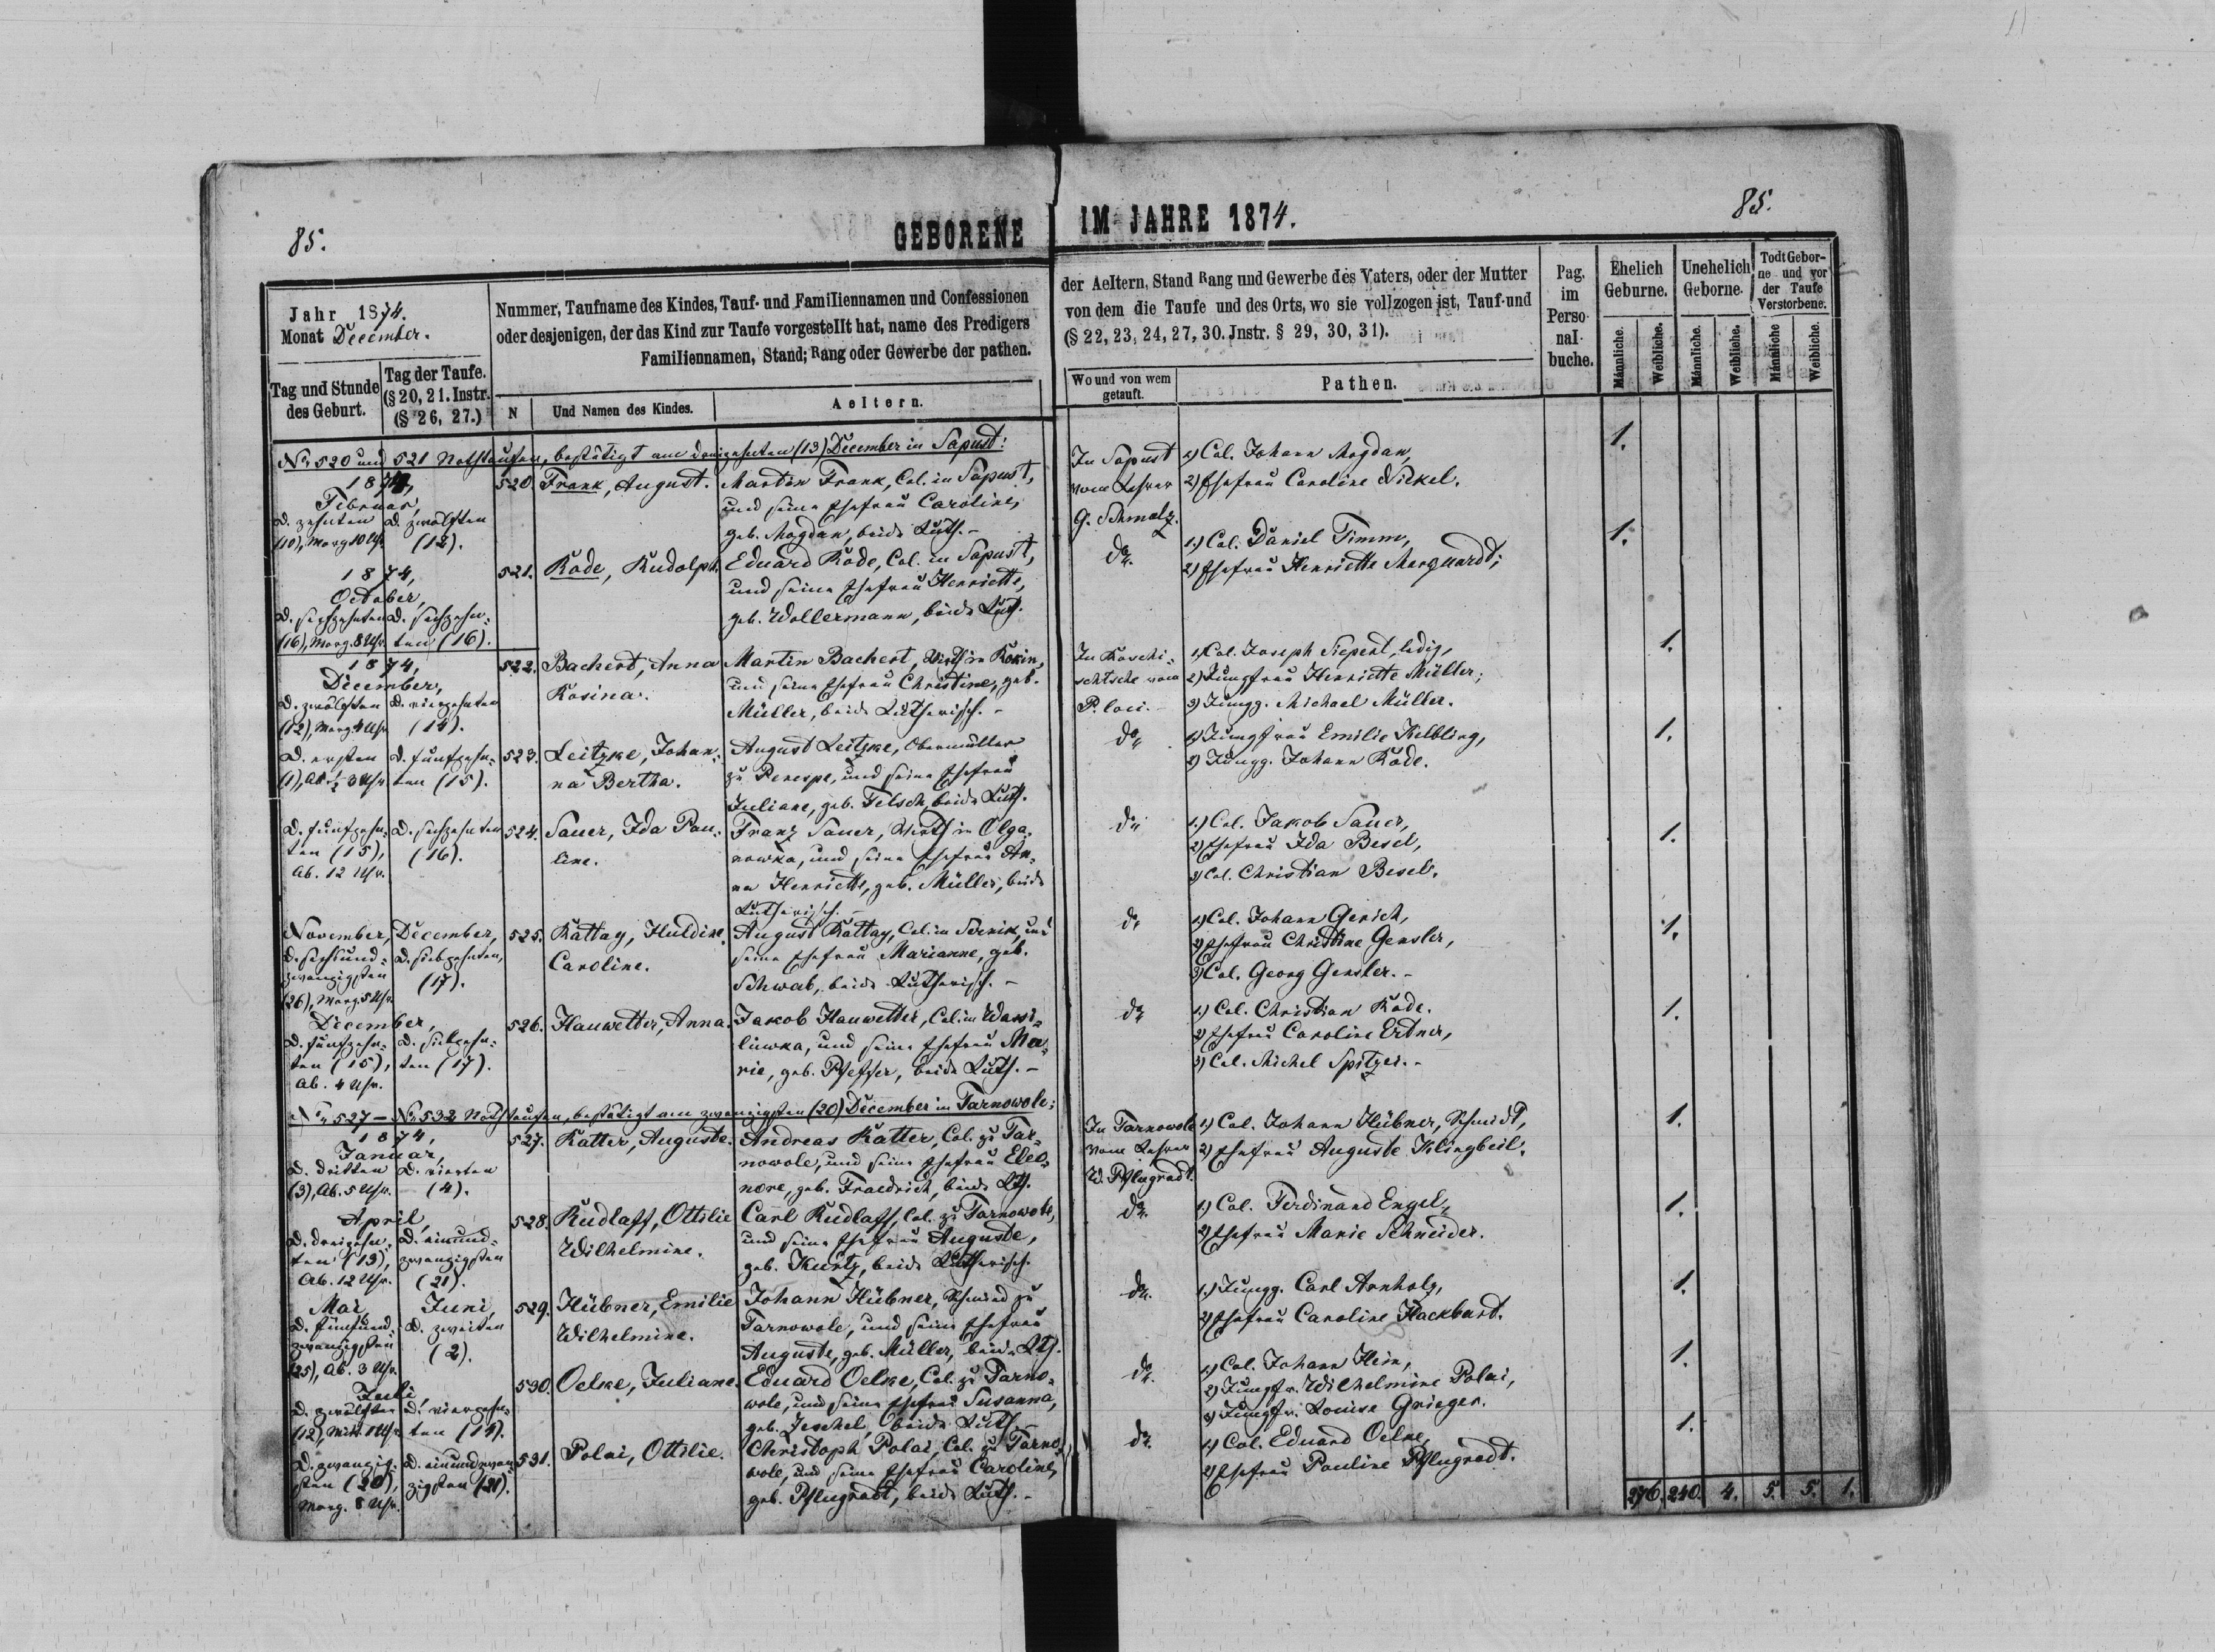 85.
GEBORENE IM JAHRE 1874.
85.
Jahr 1874.
Monat December.
Tag und Stunde
des Geburt.
Tag der Taufe.
(§ 20, 21. Instr.
(§ 26, 27.)
Nummer, Taufname des Kindes, Tauf- und Familiennamen und Confessionen
oder desjenigen, der das Kind zur Taufe vorgestellt hat, name des Predigers
Familiennamen, Stand; Rang oder Gewerbe der pathen.
N
Und Namen des Kindes.
Aeltern.
der Aeltern, Stand Rang und Gewerbe des Vaters, oder der Mutter
von dem die Taufe und des Orts, wo sie vollzogen ist, Tauf-und
(§ 22, 23, 24, 27, 30. Jnstr. § 29, 30, 31).
Wo und von wem
getauft.
Pathen.
Pag.
im
Perso-
nal-
buche.
Ehelich
Geburne.
Unehelich
Geborne.
Todt Gebor-
ne und vor
der Taufe
Verstorbene.
Männliche.
Weibliche.
Männliche.
Weibliche.
Männliche
Weibliche.
No 520 und 521 Nothtaufen, bestätigt am dreizehnten (13) December in Sapust:
1874,
Februar,
D. zehnten
(10), Morg. 10 Uhr
D. zwölften
(12).
520.
Frank, August.
Martin Frank, Col. in Sapust,
und seine Ehefrau Caroline,
geb. Mogdan, beide Luth. -
In Sapust
vom Lehrer
G. Schmalz.
1) Col. Johann Mogdan,
2) Ehefrau Caroline Nickel.
1.
1874,
October,
D. sechzehnten
(16), Morg. 8 Uhr.
D. sechzehn-
ten (16).
521.
Rode, Rudolph.
Eduard Rode, Col. in Sapust,
und seine Ehefrau Henriette,
geb. Wollermann, beide Luth.
do.
1.) Col. Daniel Timm,
2) Ehefrau Henriette Marquardt;
1.
1874,
December,
D. zwölften
(12), Morg. 4 Uhr
D. vierzehnten
(14).
522.
Bachert, Anna
Rosina.
Martin Bachert, Wirth in Rokin,
und seine Ehefrau Christine, geb.
Müller, beide Lutherisch. -
In Roschi-
schtsche vom
P. loci. -
1) Col. Joseph Siepert, ledig,
2) Jungfrau Henriette Müller;
3) Jungg. Michael Müller.
1.
D. ersten
(1), Ab. ½ 3 Uhr
D. fünfzehn-
ten (15).
523.
Leitzke, Johan-
na Bertha.
August Leitzke, Obermüller
zu Perespe, und seine Ehefrau
Juliane, geb. Felsch, beide Luth.
do
1) Jungfrau Emilie Helbling,
2) Jungg. Johann Rode.
1.
D. fünfzehn-
ten (15),
Ab. 12 Uhr.
D. sechzehnten
(16).
524.
Sauer, Ida Pau-
line.
Franz Sauer, Wirth in Olga-
nowka, und seine Ehefrau An-
na Henriette, geb. Müller, beide
Lutherisch. -
do
1.) Col. Jakob Sauer,
2) Ehefrau Ida Besel,
3) Col. Christian Besel.
1.
November,
D. sechsund-
zwanzigsten
(26), Morg. 5 Uhr
December,
D. siebzehnten,
(17).
525.
Rattay, Huldine
Caroline.
August Rattay, Col. in , und
seine Ehefrau Marianne, geb.
Schwab, beide Lutherisch. -
do
1) Col. Johann Gerich,
2) Ehefrau Christine Gensler,
3) Col. Georg Gensler. -
1.
December,
D. fünfzehn-
ten (15),
Ab. 4 Uhr.
D. siebzehn-
ten (17).
526.
Hauwetter, Anna.
Jakob Hauwetter, Col. in Wassi-
liuwka, und seine Ehefrau Ma-
rie, geb. Pfeffer, beide Luth. -
do
1.) Col. Christian Rode.
2) Ehefrau Caroline Erdner,
3) Col. Michel Spitzer. -
1.
No 527 - No 532 Nothtaufen, bestätigt am zwanzigsten (20) December in Tarnowole:
1874,
Januar,
D. dritten
(3), Ab. 5 Uhr.
D. vierten
(4).
527.
Ratter, Auguste.
Andreas Ratter, Col. zu Tar-
nowole, und seine Ehefrau Eleo-
nore, geb. Fraedrich, beide Lth.
In Tarnowole
vom Lehrer
W. Pflugradt.
1) Col. Johann Hübner, Schmidt,
2) Ehefrau Auguste Klingbeil.
1.
April,
D. dreizehn-
ten (13),
Ab. 12 Uhr.
D. einund-
zwanzigsten
(21).
528.
Rudlaff, Ottilie
Wilhelmine.
Carl Rudlaff, Col. zu Tarnowole,
und seine Ehefrau Auguste,
geb. Kurtz, beide Lutherisch.
do.
1) Col. Ferdinand Engel,
2) Ehefrau Marie Schneider.
1.
Mai,
D. fünfund-
zwanzigsten
(25), Ab. 3 Uhr.
Juni,
D. zweiten
(2).
529.
Hübner, Emilie
Wilhelmine.
Johann Hübner, Schmied zu
Tarnowole, und seine Ehefrau
Auguste, geb. Müller, beide Lth.
do.
1.) Jungg. Carl Arnholz,
2) Ehefrau Caroline Hackbart.
1.
Juli,
D. zwölften
(12), Mitt. 1 Uhr
D. vierzehn-
ten (14).
530.
Oelke, Juliane.
Eduard Oelke, Col. zu Tarno-
wole, und seine Ehefrau Susanna,
geb. Jeschel, beide Luth. -
do.
1) Col. Johann Hein,
2) Jungfr. Wilhelmine Polai,
3) Jungfr. Louise Grieger.
1.
D. zwanzig-
sten (20),
Morg. 8 Uhr.
D. einundzwan-
zigsten (21).
531.
Polai, Ottilie.
Christoph Polai, Col. zu Tarno-
wole, und seine Ehefrau Caroline,
geb. Pflugradt, beide Luth. -
do.
1) Col. Eduard Oelke,
2) Ehefrau Pauline Pflugradt.
1.
276. 240. 4. 5. 5. 1.